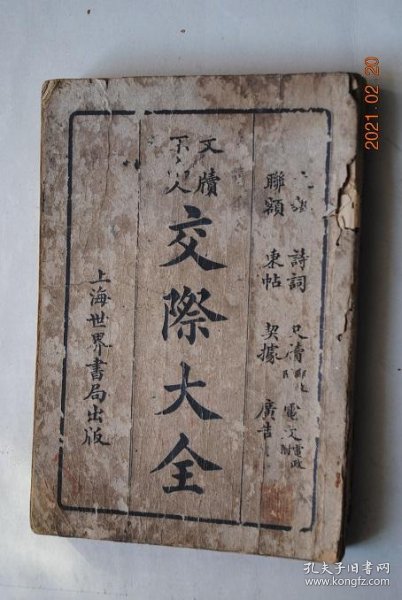 詩詞 尺牘 電文 電政
聯額 柬帖 契據 廣告
文牘
交際大全
上海世界書局出版
2021.02.20
孔夫子旧书网
www.kongfz.com